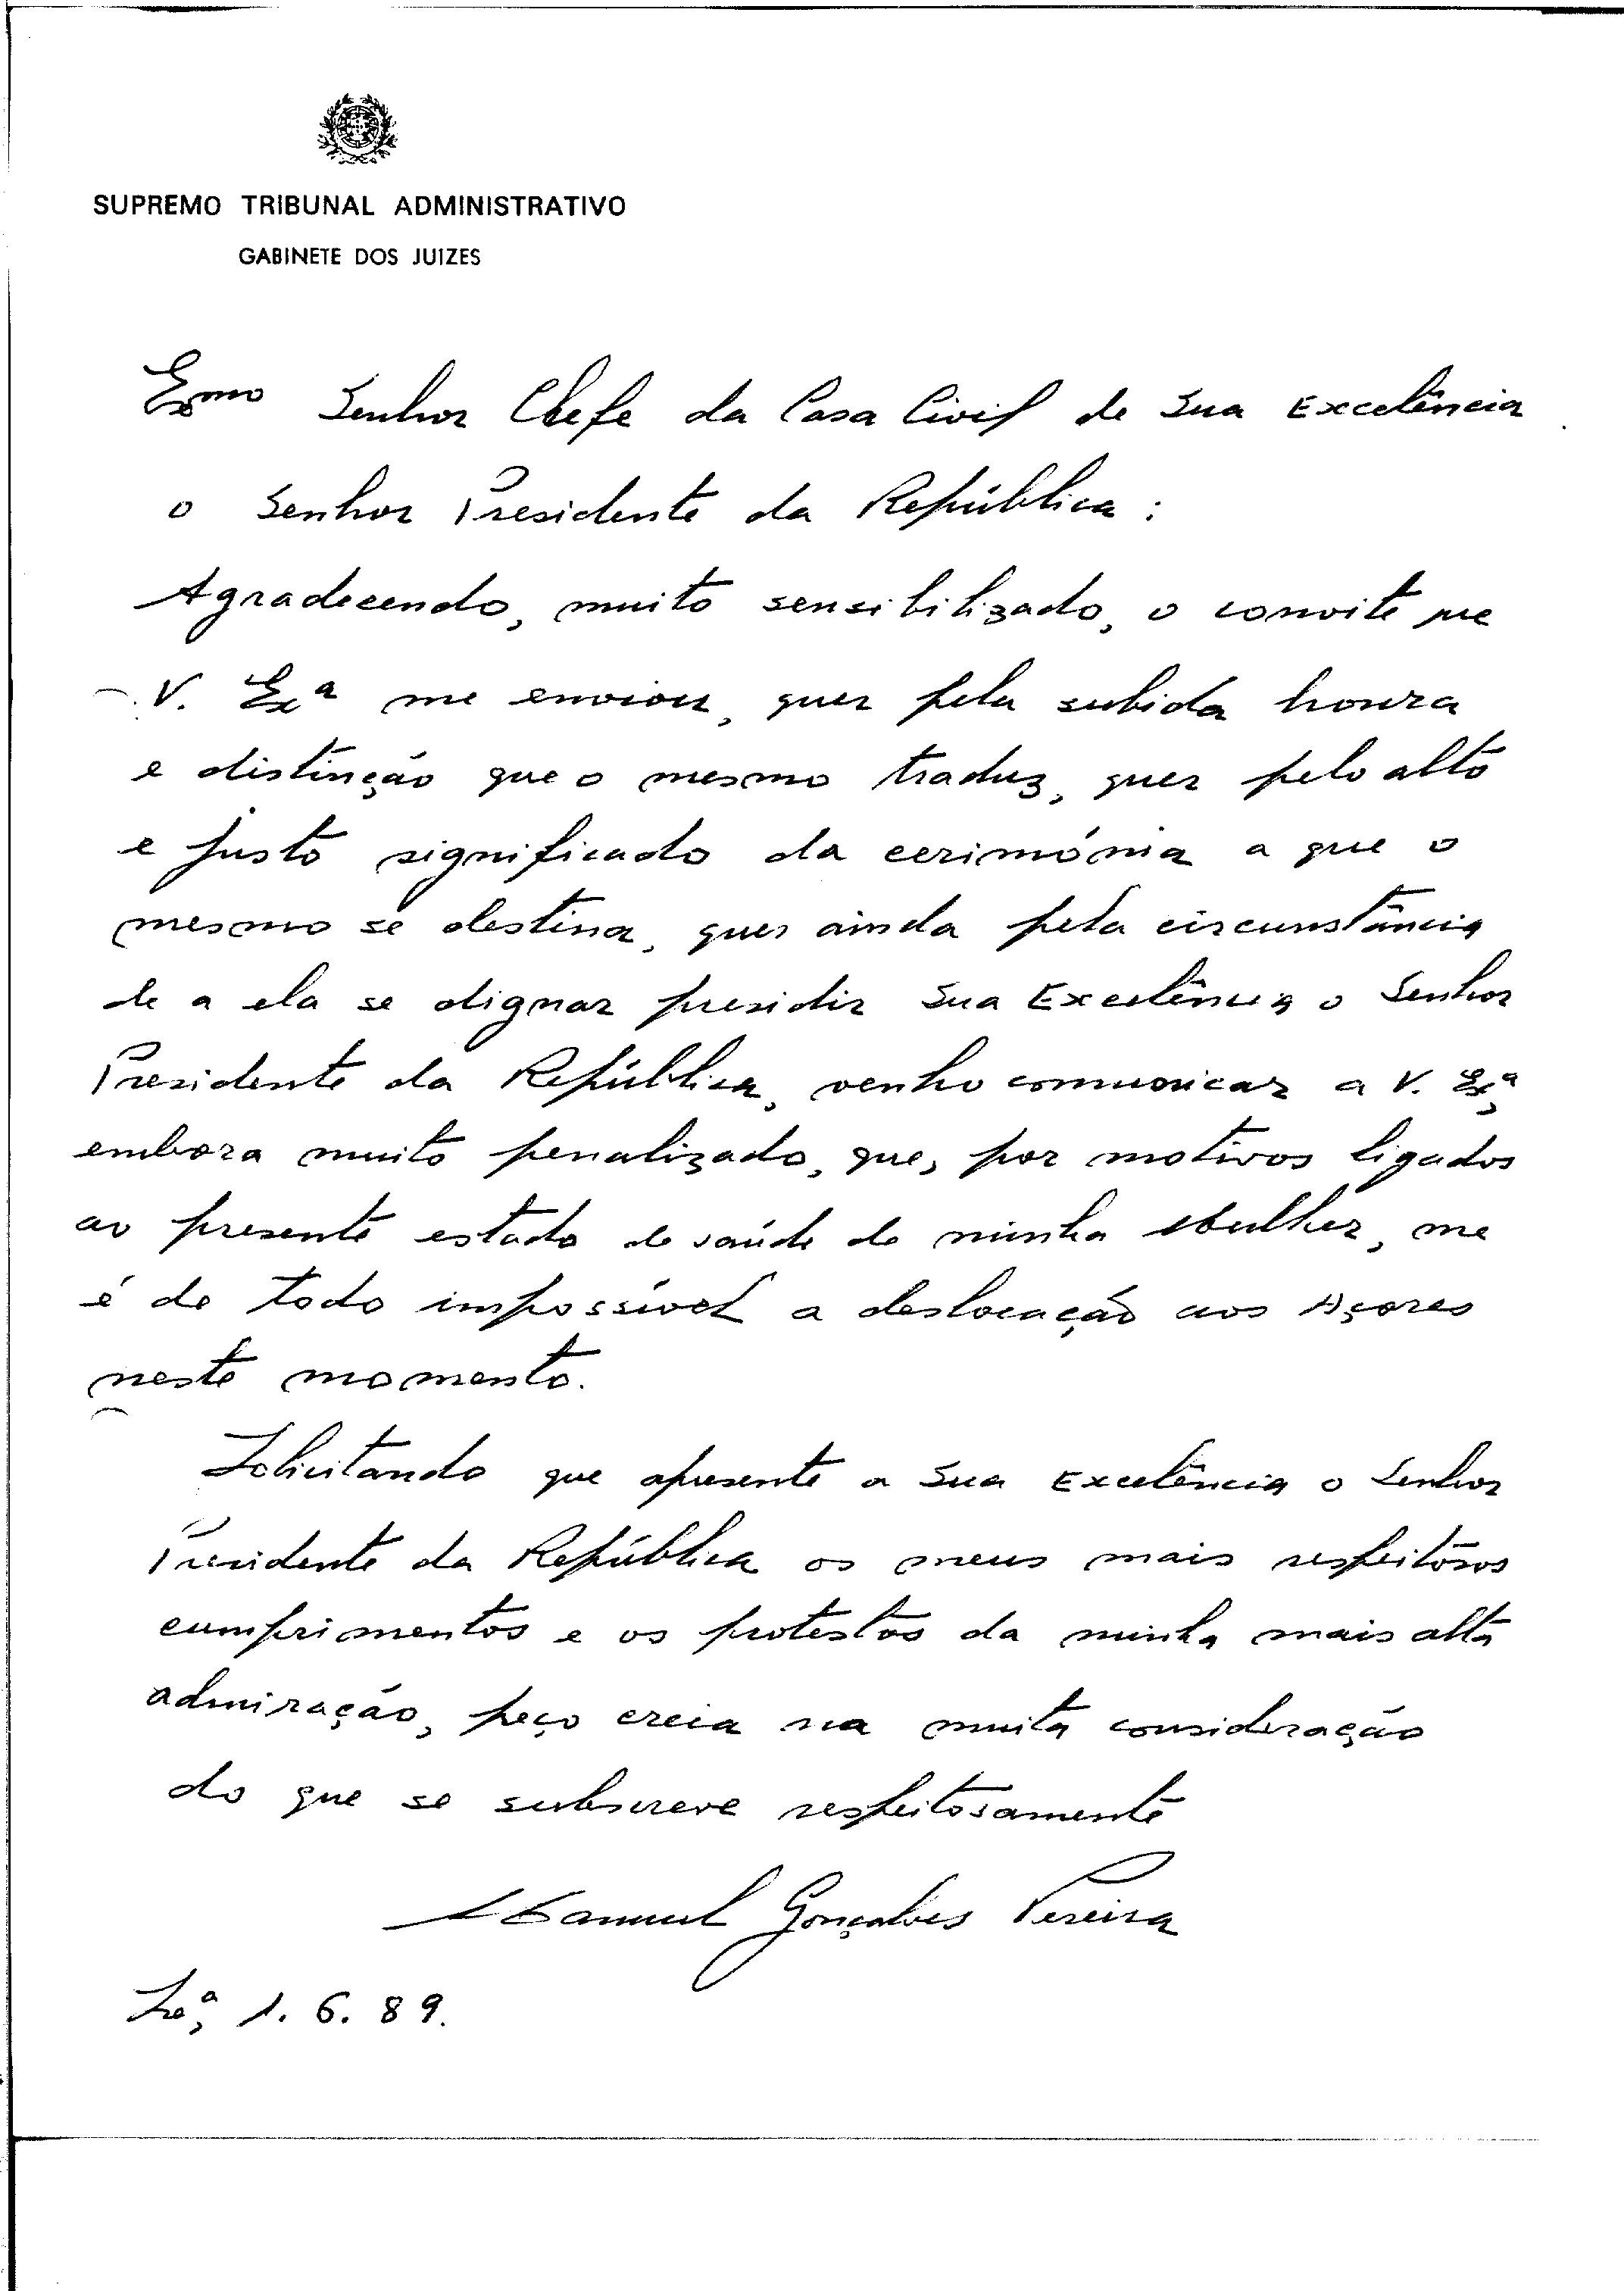 SUPREMO TRIBUNAL ADMINISTRATIVO
GABINETE DOS JUIZES
Exmo Senhor Chefe da Casa Civil de Sua Excelência
o Senhor Presidente da República :
Agradecendo, muito sensibilizado, o convite que
V. Exª me enviou, quer pela subida honra
e distinção que o mesmo traduz, quer pelo alto
e justo significado da cerimónia a que o
mesmo se destina, quer ainda pela circunstância
de a ela se dignar presidir Sua Excelência o Senhor
Presidente da República, venho comunicar a V. Exª,
embora muito penalizado, que, por motivos ligados
ao presente estado de saúde de minha Mulher, me
é de todo impossível a deslocação aos Açores
neste momento.
Solicitando que apresente a Sua Excelência o Senhor
Presidente da República os meus mais respeitosos
cumprimentos e os protestos da minha mais alta
admiração, peço creia na muita consideração
do que se subscreve respeitosamente
Manuel Gonçalves Pereira
Lxª, 1. 6. 89.